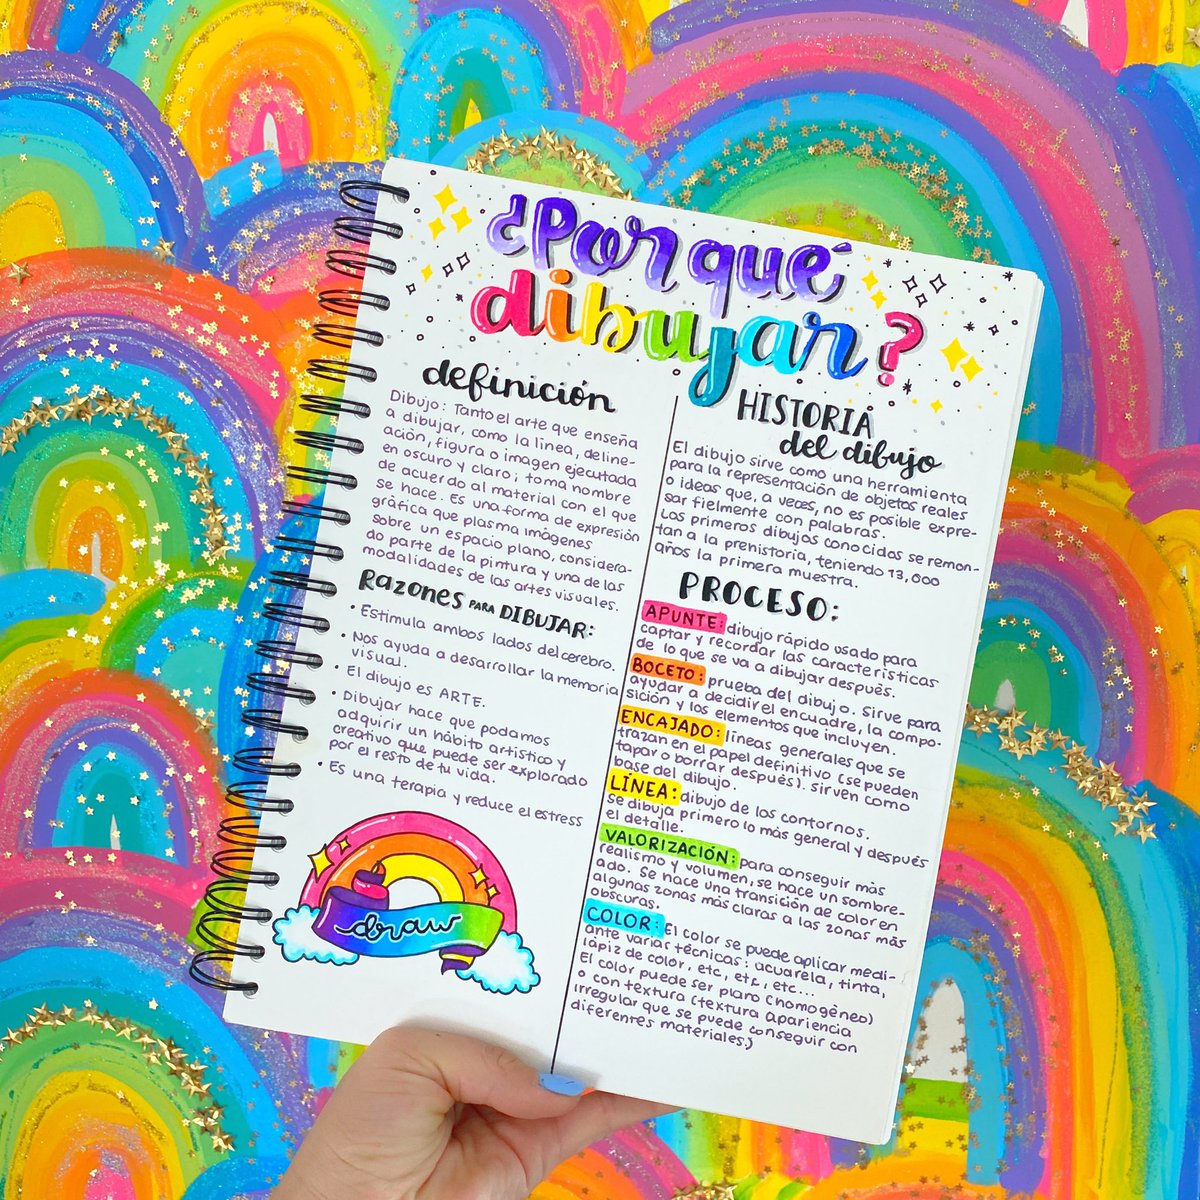 ¿Por qué
dibujar?
definición
Dibujo: Tanto el arte que enseña
a dibujar, como la línea, deline-
ación, figura o imagen ejecutada
en oscuro y claro; toma nombre
de acuerdo al material con el que
se hace. Es una forma de expresión
gráfica que plasma imágenes
sobre un espacio plano, considera-
do parte de la pintura y una de las
modalidades de las artes visuales.
Razones PARA DIBUJAR:
• Estimula ambos lados del cerebro.
• Nos ayuda a desarrollar la memoria
visual.
• El dibujo es ARTE.
• Dibujar hace que podamos
adquirir un hábito artístico y
creativo que puede ser explorado
por el resto de tu vida.
• Es una terapia y reduce el estress
draw
HISTORIA
del dibujo
El dibujo sirve como una herramienta
para la representación de objetas reales
o ideas que, a veces, no es posible expre-
sar fielmente con palabras.
Las primeros dibujos conocidas se remon-
tan a la prehistoria, teniendo 13,000
años la primera muestra.
PROCESO:
APUNTE: dibujo rápido usado para
captar y recordar las características
de lo que se va a dibujar después.
BOCETO: prueba del dibujo. Sirve para
ayudar a decidir el encuadre, la compo-
sición y los elementos que incluyen.
ENCAJADO: líneas generales que se
trazan en el papel definitivo (se pueden
tapar o borrar después). Sirven como
base del dibujo.
LÍNEA: dibujo de los contornos.
se dibuja primero lo más general y después
el detalle.
VALORIZACIÓN: para conseguir más
realismo y volumen, se hace un sombre-
ado. Se hace una transición de color en
algunas zonas más claras a las zonas más
obscuras.
COLOR: El color se puede aplicar medi-
ante varias técnicas: acuarela, tinta,
lápiz de color, etc, etc, etc...
El color puede ser plano (homogéneo)
o con textura (textura apariencia
irregular que se puede conseguir con
diferentes materiales.)